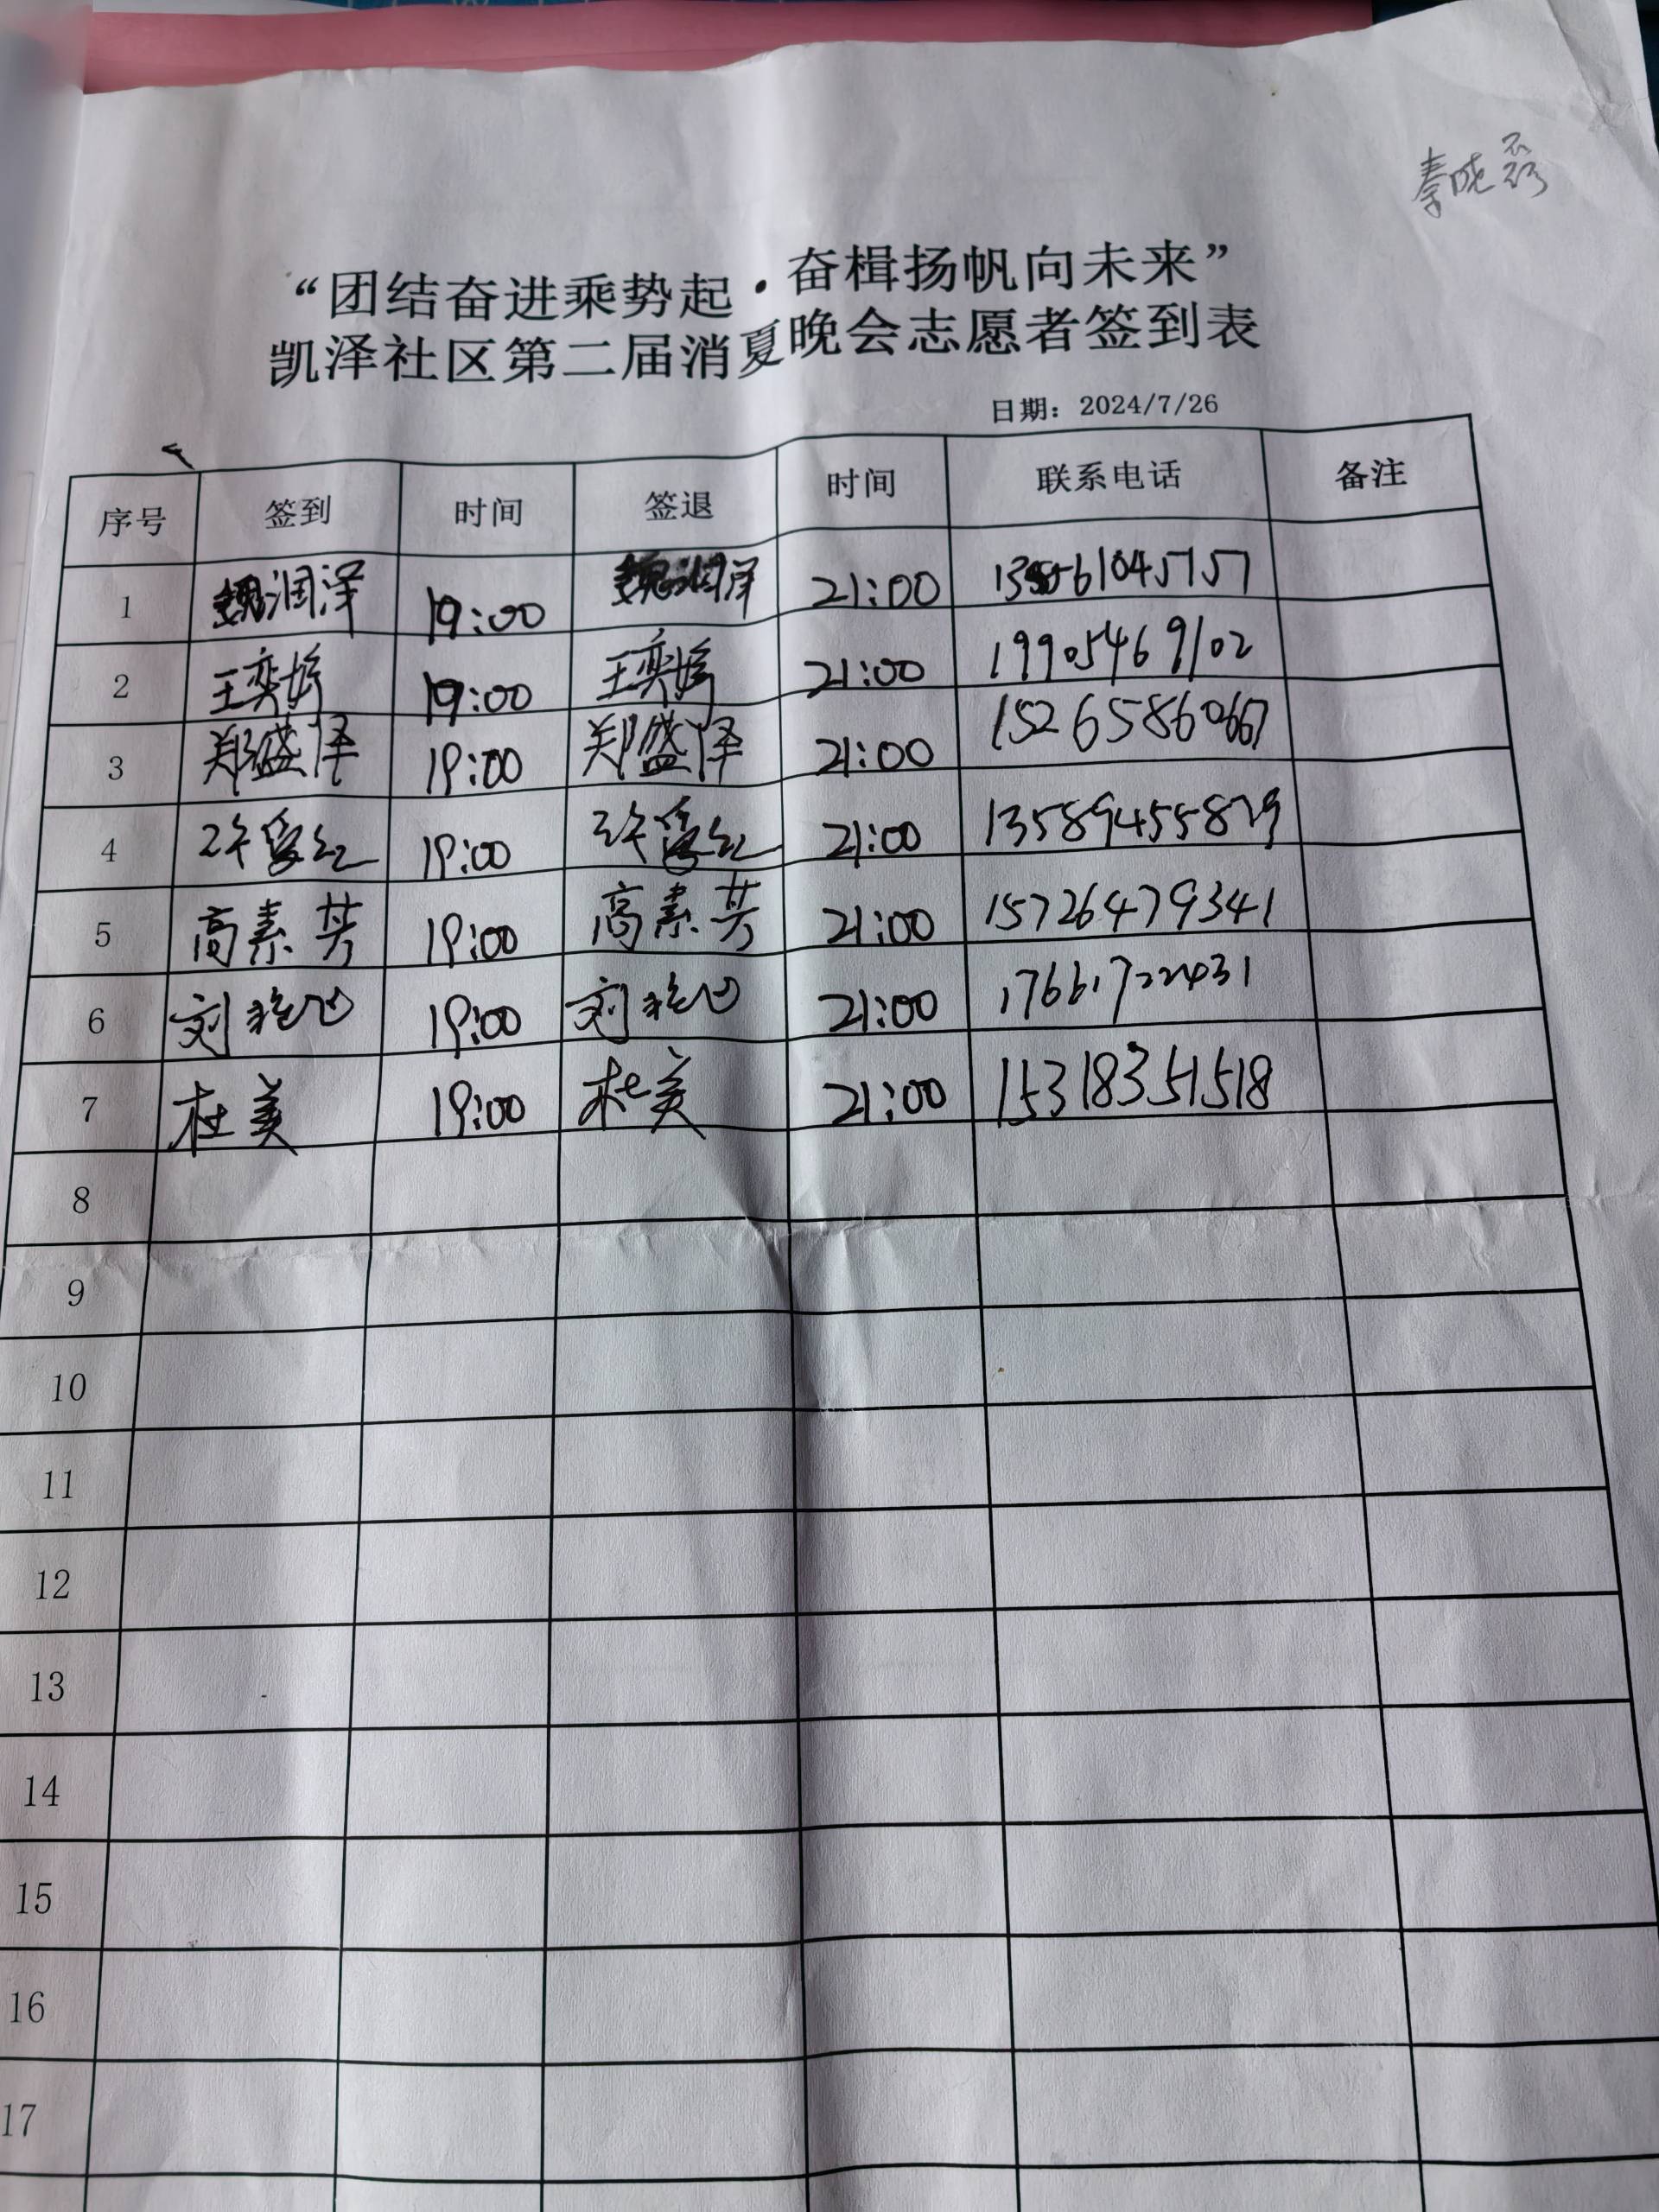 秦晓磊
“团结奋进乘势起·奋楫扬帆向未来”
凯泽社区第二届消夏晚会志愿者签到表
日期：2024/7/26
序号 签到 时间 签退 时间 联系电话 备注
1 魏润泽 19:00 魏润泽 21:00 61045757
2 王奕婷 19:00 王奕婷 21:00 19905469102
3 郑盛泽 19:00 郑盛泽 21:00 15265860667
4 许 19:00 许 21:00 13589455829
5 高素芳 19:00 高素芳 21:00 15726479341
6 刘 19:00 刘 21:00 17661722431
7 杜美 19:00 杜美 21:00 15318351518
8
9
10
11
12
13
14
15
16
17